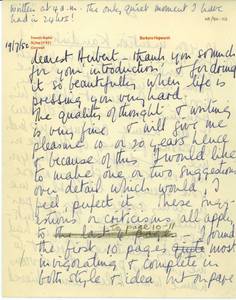 written at 4 a.m. The only quiet moment I have
had in 24 hrs!
Barbara Hepworth
19/7/50
dearest Herbert - thank you so much
for your introduction, & for doing
it so beautifully when life is
pressing you very hard.
The quality of thought & writing
is very fine & will give me
pleasure 10 or 20 years hence
& because of this I would like
to make one or two suggestions
over detail which would, I
feel, perfect it. These sugg-
estions or criticisms all apply
to page 10-11
the last page - I found
the first 10 pages quite most
invigorating & complete in
both style & idea but on page